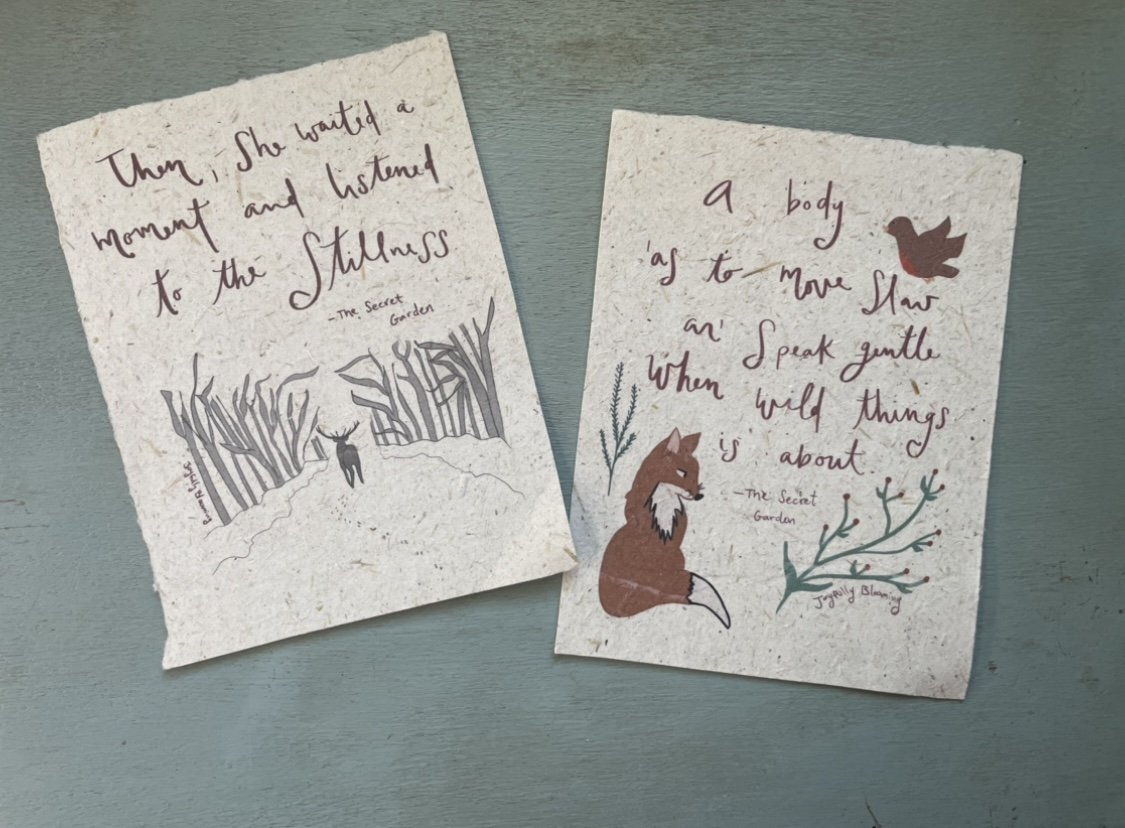 Then, She waited a
moment and listened
to the Stillness
-The Secret
Garden
Joyfully Blooming
A body
'as to move slow
an' Speak gentle
When wild things
is about.
-The Secret
Garden
Joyfully Blooming